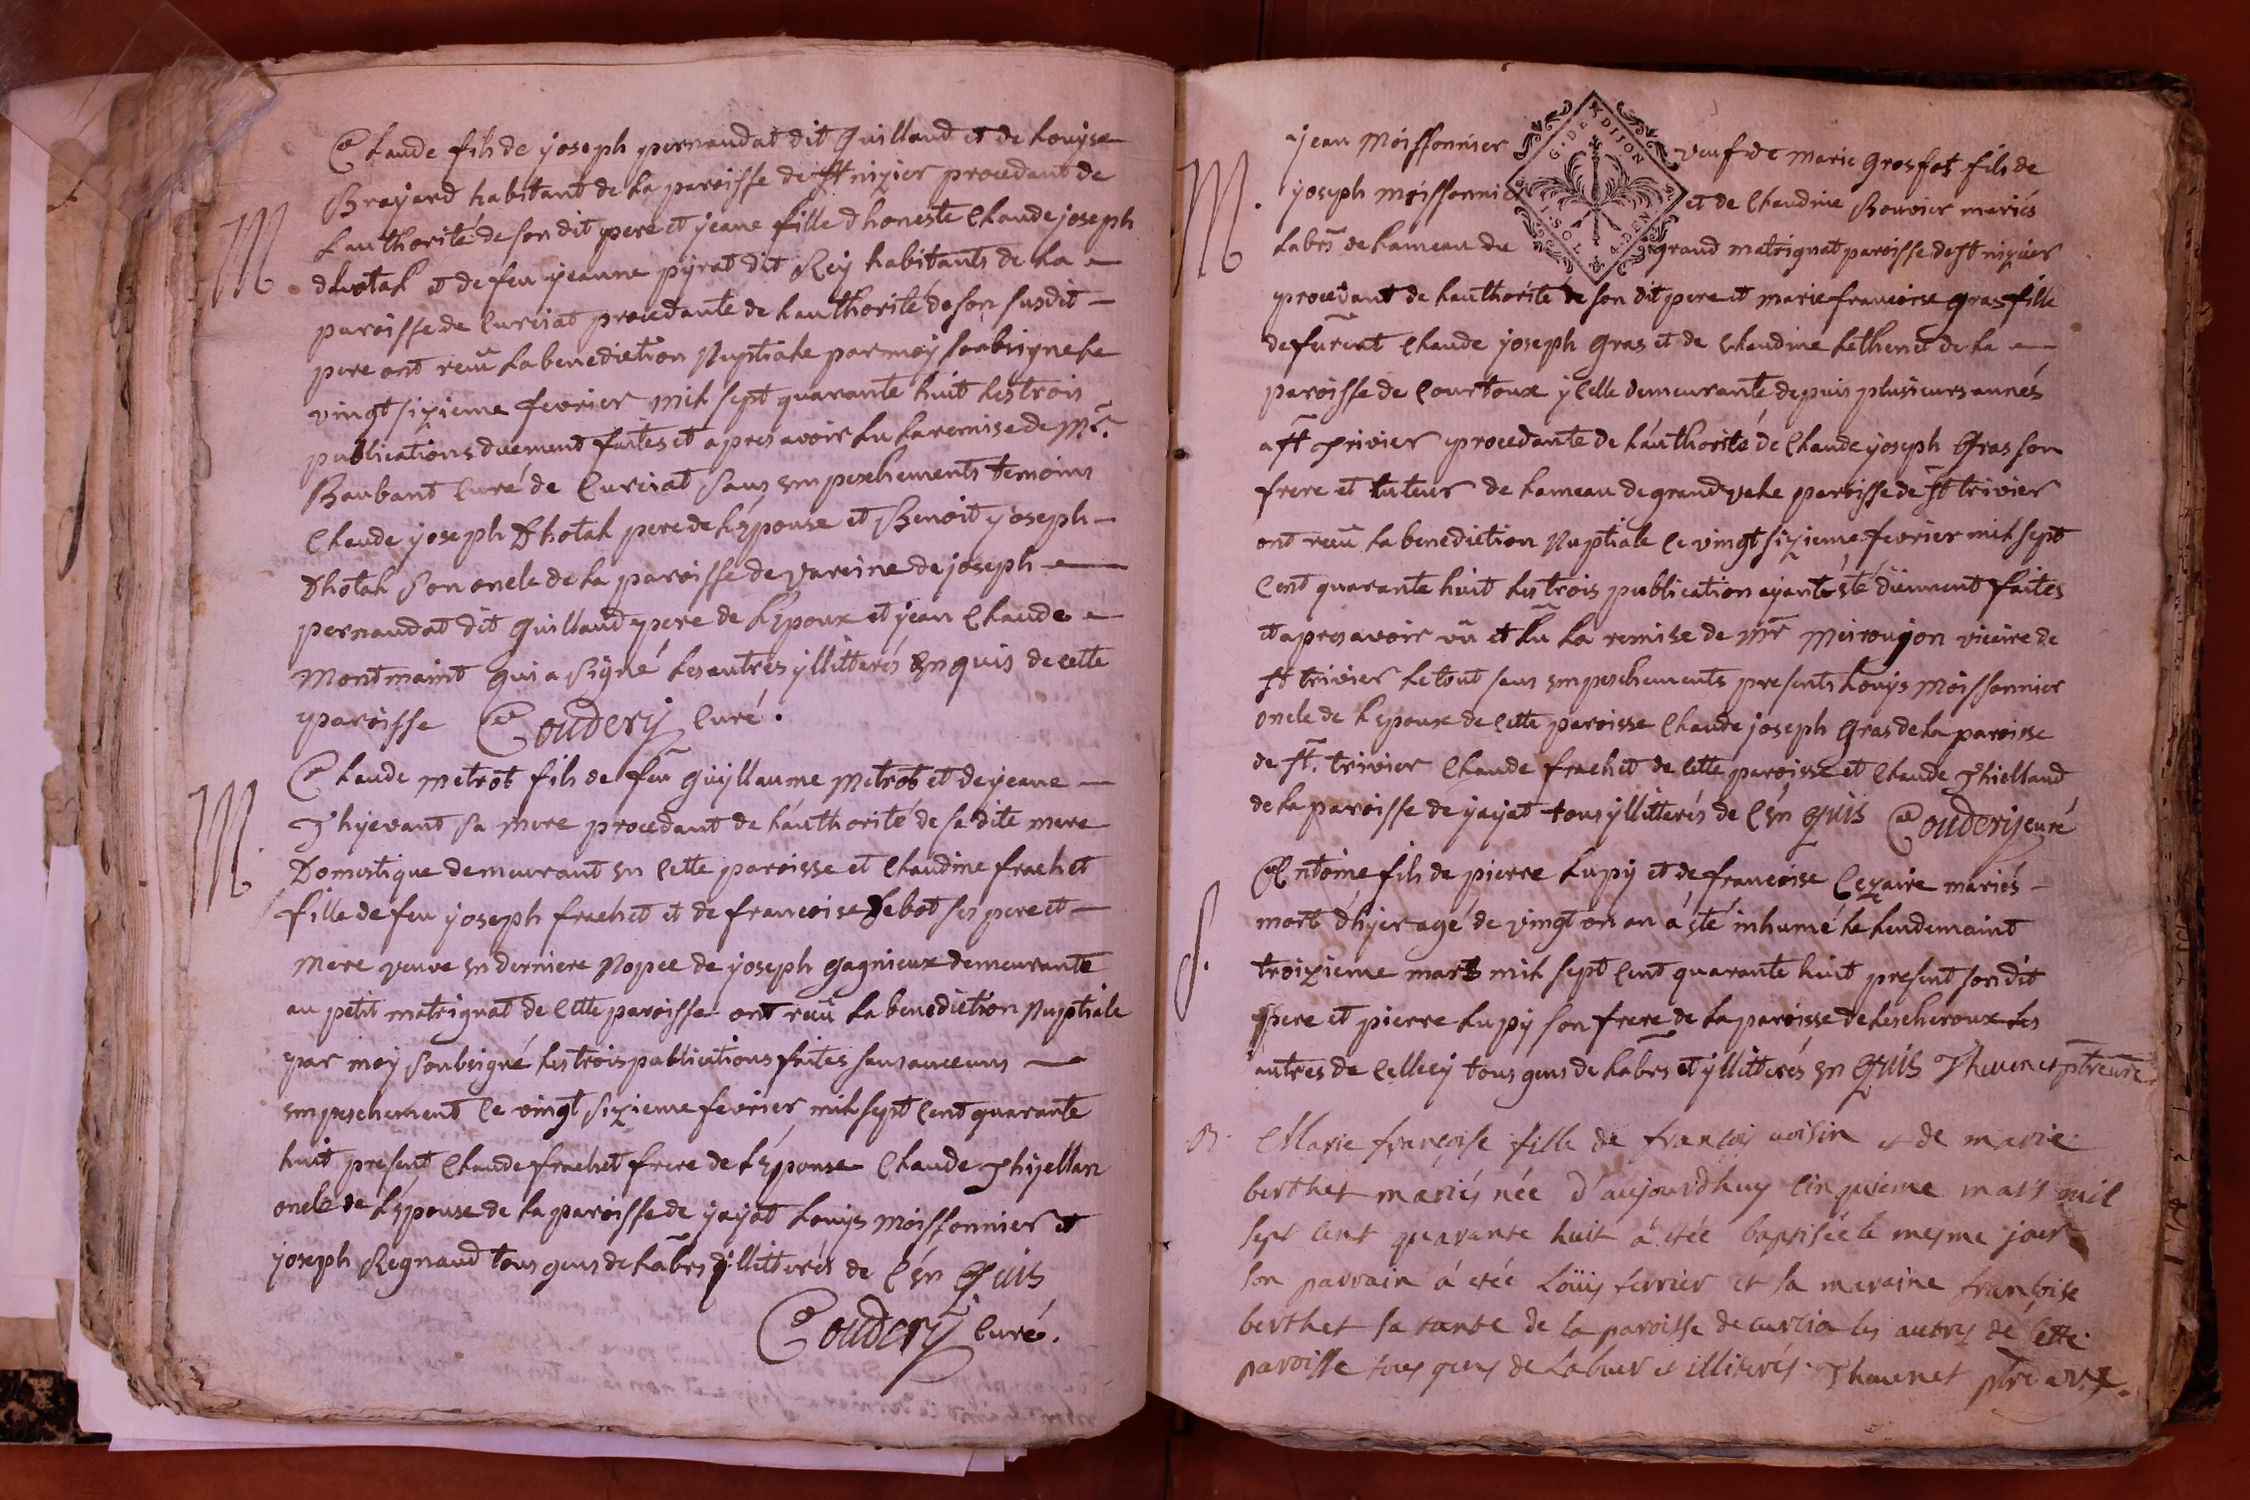 Claude fils de joseph pernaudat dit Guillaud et de Louyse
Brayard habitant de La paroisse de st nizier procedant de
M. Lauthorité de son dit pere et jeane fille dhoneste Claude joseph
dhotal et de feu yeanne pyrat dit Rey habitants de La
paroisse de Curciat procedante de Lauthorité de son susdit
pere ont reçu La benediction Nuptiale par moy soubsigne Le
vingt sixieme fevrier mil sept quarante huit Les trois
publications duement faites et apres avoir Lu La remise de Mr.
Baubant Curé de Curciat sans empeschements temoins
Claude joseph Dhotal pere de L'Epouse et Benoit joseph
Dhotal son oncle de La paroisse de Vareine de joseph
pernaudat dit Guillaud pere de L'Epoux et jean Claude
Montmaint qui a signé Les autres yllitterés enquis de cette
paroisse Coudery Curé.
Claude Metrot fils de feu Guyllaume Metrot et de yeane
Thyevant sa Mere procedant de Láuthorité de sa dite mere
M. Domestique demeurant en Cette paroisse et Claudine frachet
fille de feu joseph frachet et de francoise Debot ses pere et
Mere veuve en derniere Nopce de joseph Gagnieux demeurante
au petit matrignat de Cette paroisse ont reçu La benediction Nuptiale
par moy soubsigné Les trois publications faites sans aucuns
empeschement Ce vingt sixieme fevrier mil sept Cent quarante
huit present Claude frachet frere de L'Epouse Claude Thyellan
oncle de L'Epouse de La paroisse de yayat Louys Moissonnier et
joseph Regnaud tous gens de Labrs yllitterés de C'en Quis
Coudery Curé.
jean Moissonnier veuf de Marie Grosfot fils de
M. joseph Moissonnier et de Claudine Bouvier mariés
Labrs de Lameau du grand matrignat paroisse de st nizier
G. DE DIJON
1. SOL 4. DEN
procedant de Lauthorité de son dit pere et marie francoise Gras fille
de furent Claude joseph Gras et de Claudine Lethenet de La
paroisse de Courtoux yCelle demeurante depuis plusieurs annés
a st Trivier procedante de Láuthorité de Claude joseph Gras son
frere et tuteur de Lameau de grand vale paroisse de st trivier
ont reçu La benediction Nuptiale Ce vingt sixieme fevrier mil sept
Cent quarante huit Les trois publication ayant été düement faites
et apres avoir vû et Lû La remise de Mr Meiroujon vicaire de
st trivier Le tout sans empeschements presents Louys Moissonnier
oncle de L'Epoux de Cette paroisse Claude joseph Gras de La paroisse
de st. trivier Claude frachet de Cette paroisse et Claude Thiellaud
de La paroisse de yayat tous yllitterés de C'en Quis Coudery Curé
Antoine fils de pierre Lupy et de francoise Cezaire mariés
S. mort d'hyer agé de vingt on an á été inhumé Le Lendemaint
troizieme mars mil sept Cent quarante huit present son dit
pere et pierre Lupy son frere de La paroisse de Lescheroux Les
autres de Cellecy tous gens de Labrs et yllitterés en Quis Thevenet ptre
B. Marie françoise fille de françois voisin et de marie
berthet mariés née d'aujourdhuy Cinquieme mars mil
sept Cent quarante huit á étée baptisée le mesme jour
son parrain á etée Loüis ferrier et sa maraine françoise
berthet sa tante de la paroisse de curcia les autres de Cette
paroisse tous gens de Labeur et illiterés. Thevenet ptre